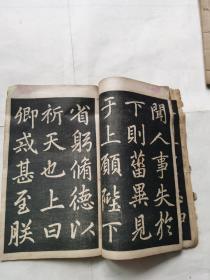 聞人事失於
下則菑異見
于上願陛下
省躬脩德以
祈天也上曰
卿戒甚至朕